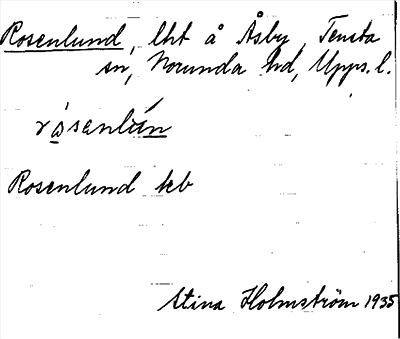 Rosenlund, lht å Åsby, Tensta
sn, Norunda hd, Upps. l.
rósenlùn
Rosenlund kb
Stina Holmström 1935